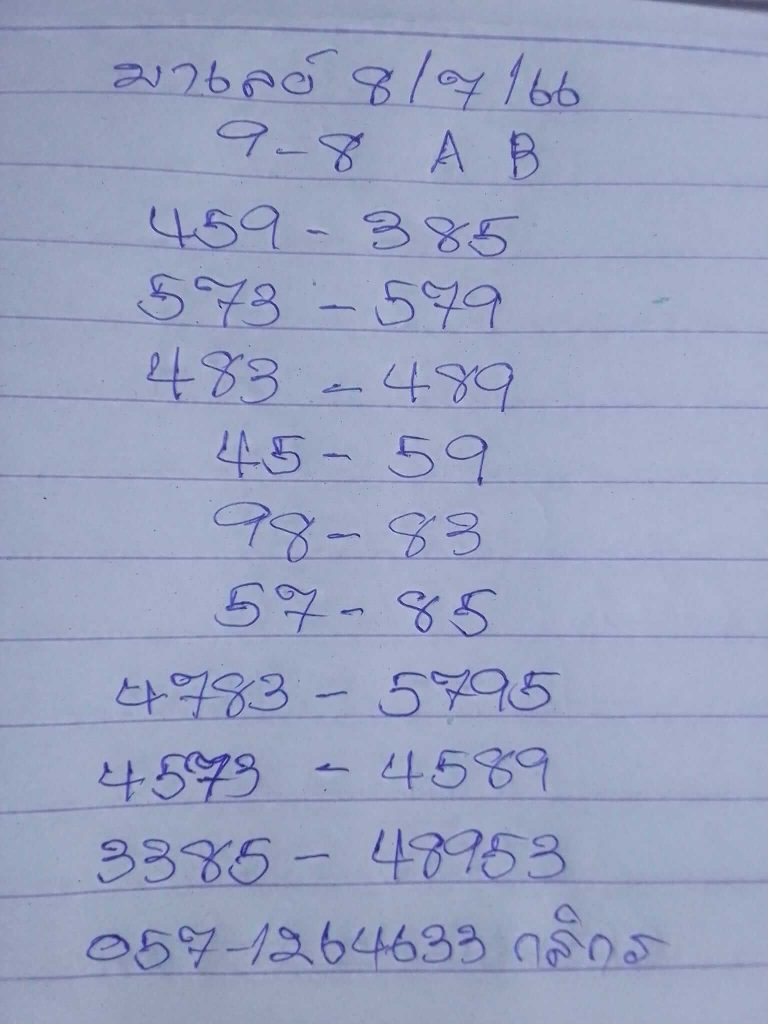 มาเลย์ 8/7/66
9-8 A B
459 - 385
573 - 579
483 - 489
45 - 59
98 - 83
57 - 85
4783 - 5795
4573 - 4589
3385 - 48953
057-1264633 กสิกร